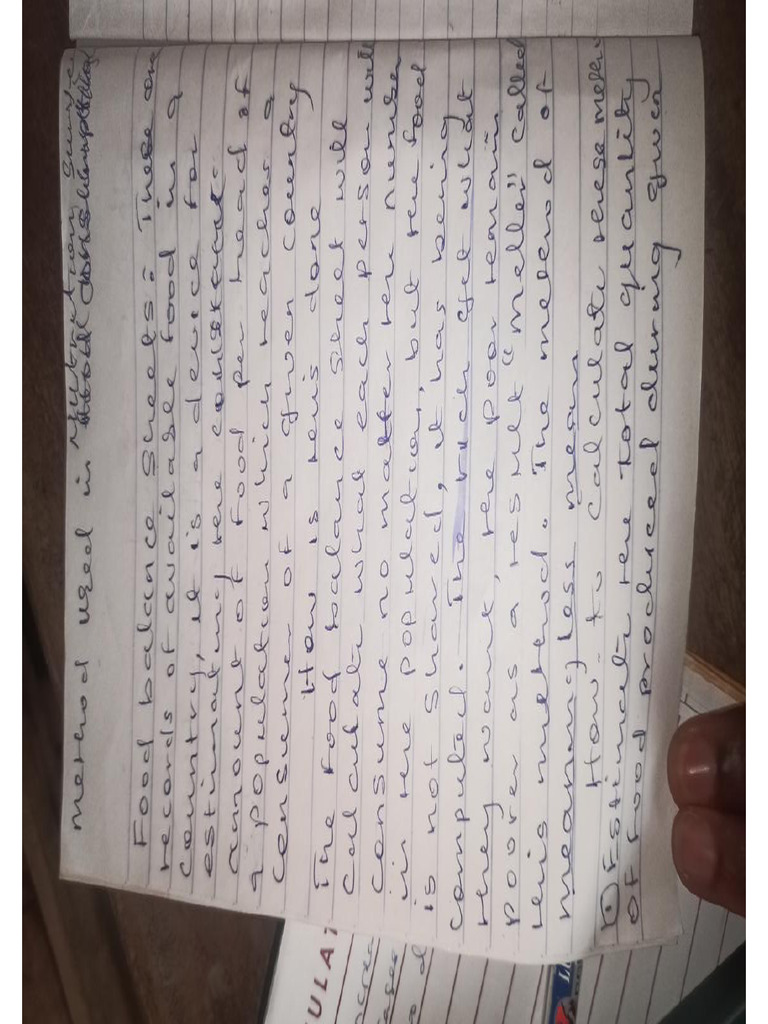 method used in Nutrition Survey
Food balance sheets: These are
records of available food in a
country, it is a device for
estimating the contract
amount of food per head of
a population which reaches a
consumer of a given country
How is this done
The food balance sheet will
calculate what each person will
consume no matter the number
in the population, but the food
is not shared, it has being
computed. The rich get what
they want, the poor remain
poorer as a result " called
this method. The method of
meaning less mean
How to calculate these
① Estimate the total quantity
of food produced during given
ULAT